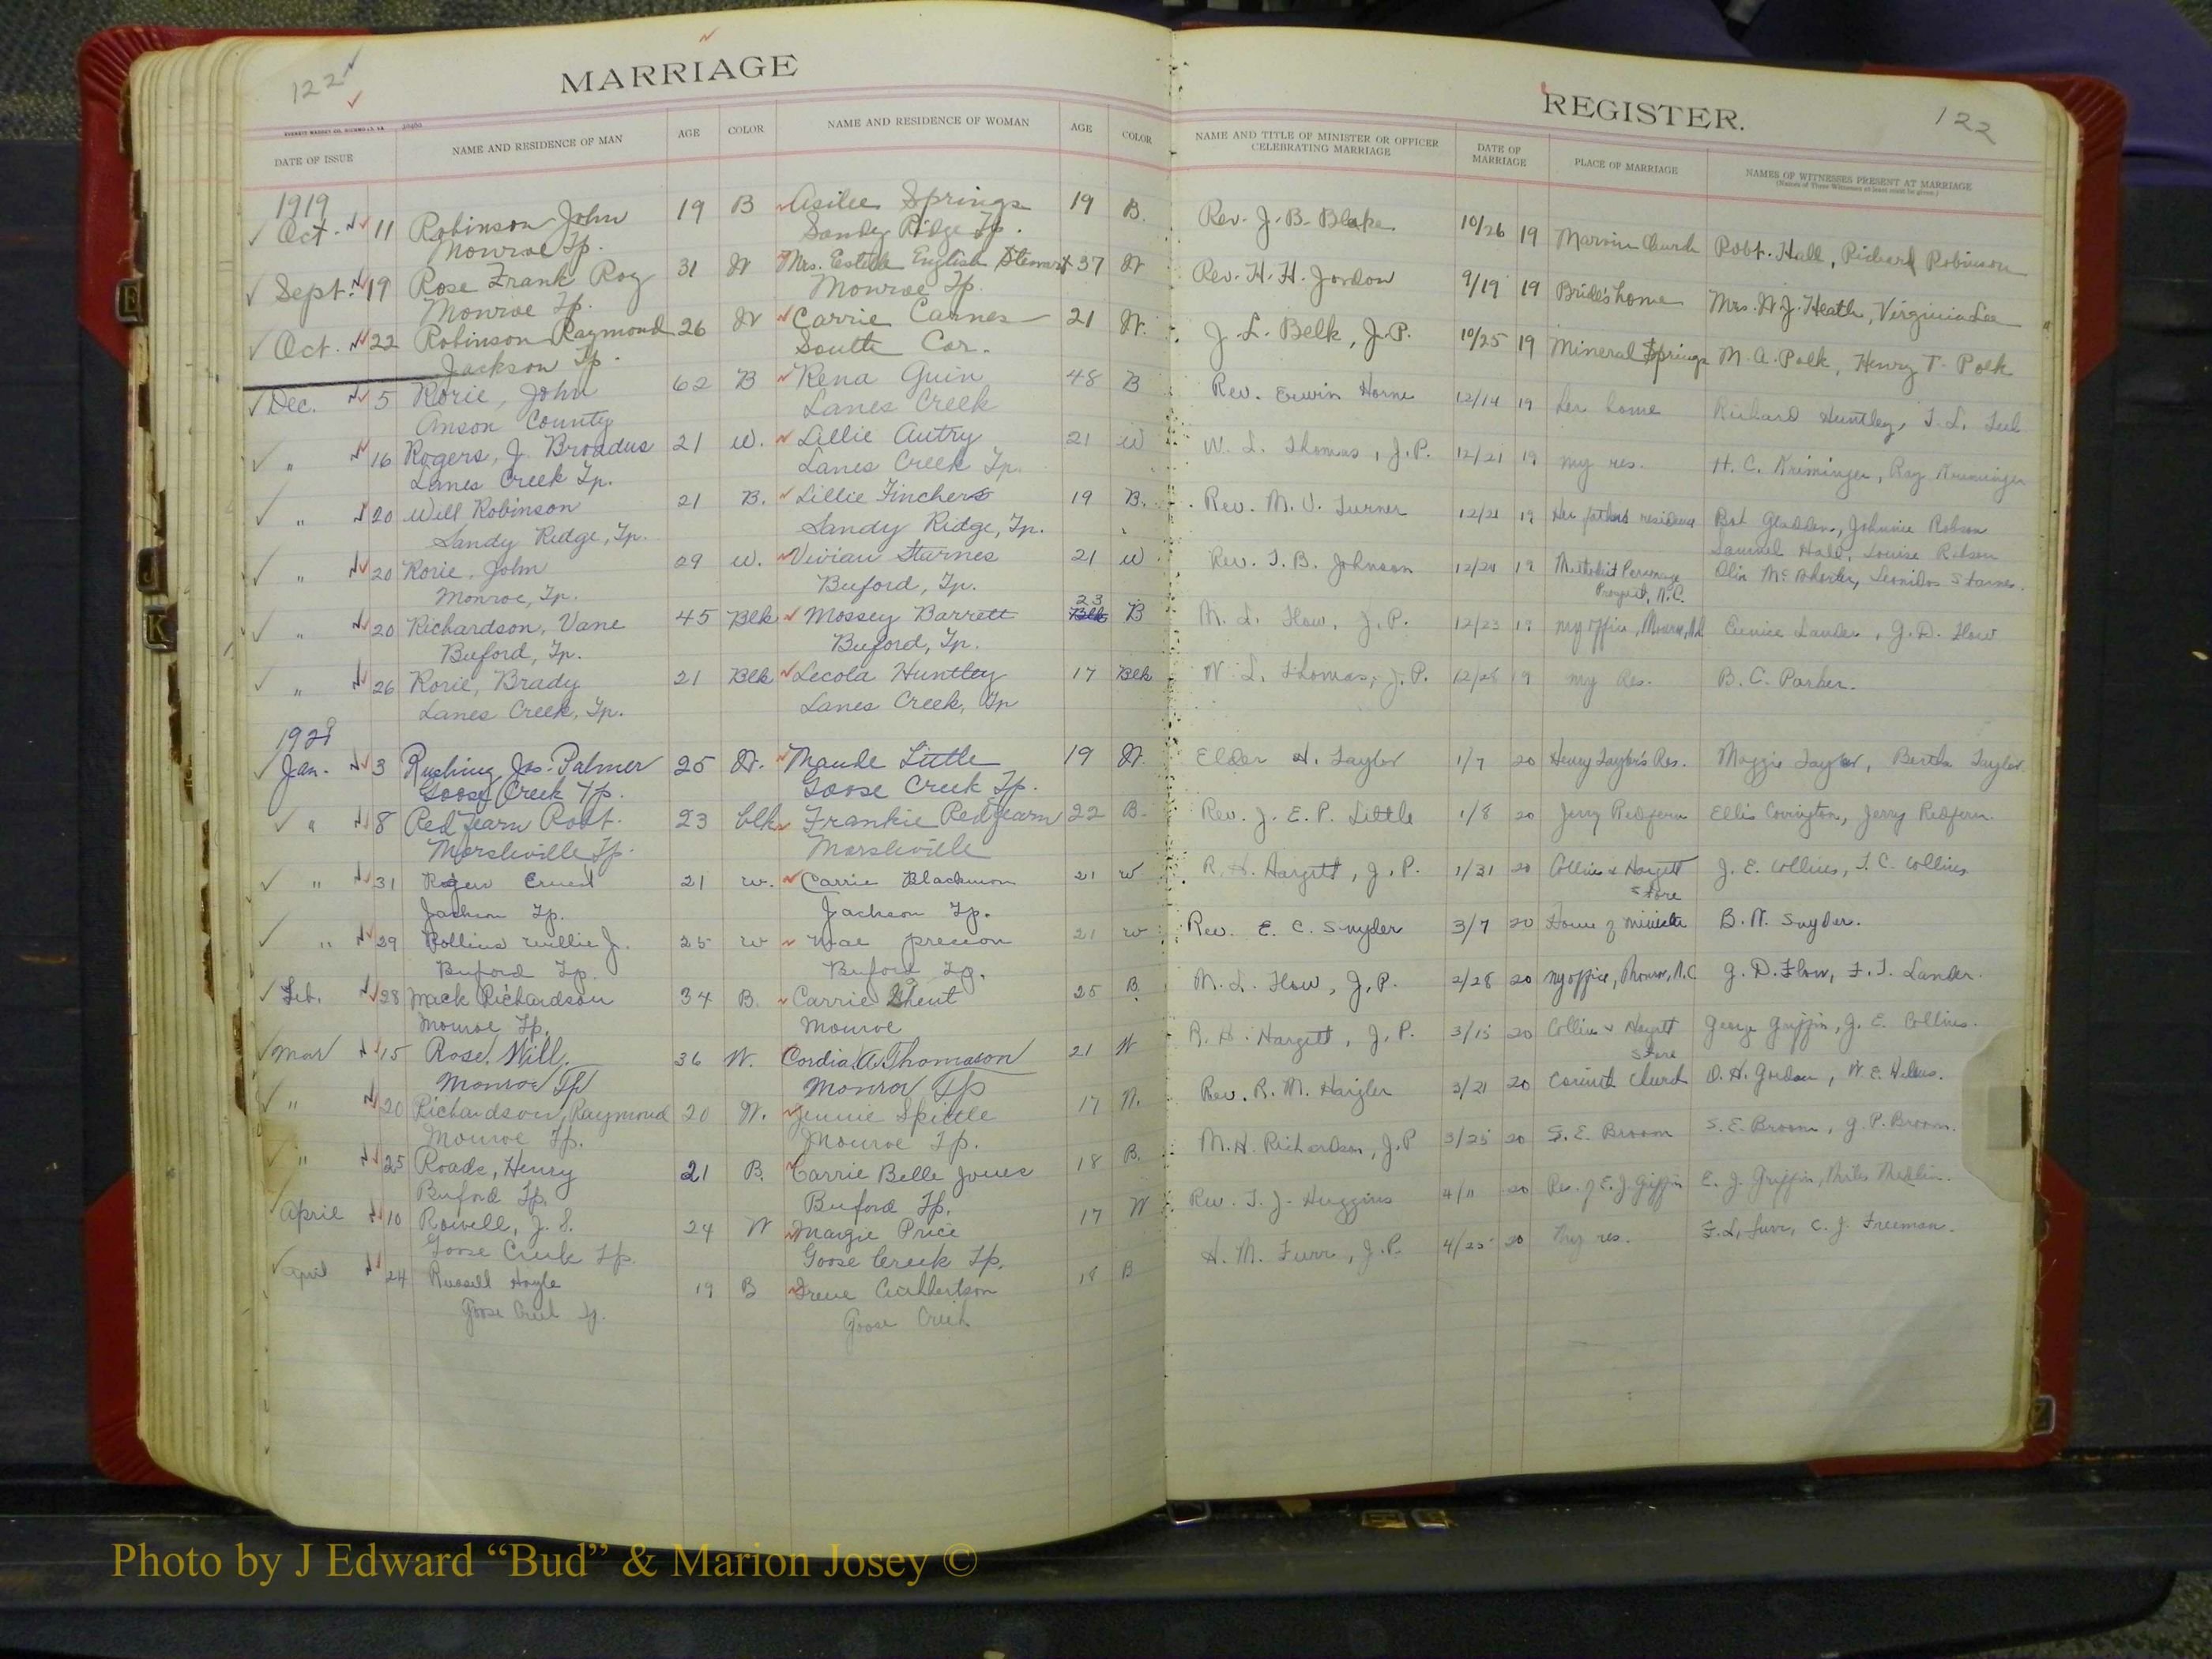 122
MARRIAGE
DATE OF ISSUE
NAME AND RESIDENCE OF MAN
AGE
COLOR
NAME AND RESIDENCE OF WOMAN
AGE
COLOR
1919
Oct. 11 Robinson John 19 B Asilee Springs 19 B.
Monroe Tp. Sandy Ridge Tp.
Sept. 19 Rose Frank Roy 31 W Mrs. Estelle English Stewart 37 W
Monroe Tp. Monroe Tp.
Oct. 22 Robinson Raymond 26 W Carrie Carnes 21 W.
Jackson Tp. South Car.
Dec. 5 Rorie, John 62 B Rena Guin 48 B
Anson County Lanes Creek
" 16 Rogers, J. Broadus 21 W. Lillie Autry 21 W
Lanes Creek Tp. Lanes Creek Tp.
" 20 Will Robinson 21 B. Lillie Fincher 19 B.
Sandy Ridge, Tp. Sandy Ridge, Tp.
" 20 Rorie, John 29 W. Vivian Starnes 21 W
Monroe, Tp. Buford, Tp.
" 20 Richardson, Vane 45 Blk Mossey Barrett 23 B
Buford, Tp. Buford, Tp.
" 26 Rorie, Brady 21 Blk Lecola Huntley 17 Blk
Lanes Creek, Tp. Lanes Creek, Tp
Jan. 3 Rushing, Jas. Palmer 25 W. Maude Little 19 W.
Goose Creek Tp. Goose Creek Tp.
" 8 Redfearn Robt. 23 blk Frankie Redfearn 22 B.
Marshville Tp. Marshville
" 31 Ernest 21 W. Carrie Blackmon 21 W
Jackson Tp. Jackson Tp.
" 29 Rollins Willie J. 25 W Mae 21 W
Buford Tp. Buford Tp.
Feb. 28 Mack Richardson 34 B. Carrie 25 B
Monroe Tp. Monroe
Mar 15 Rose, Will, 36 W. Cordia A Thomason 21 W
Monroe Tp Monroe Tp
" 20 Richardson, Raymond 20 W. Jennie Spittle 17 W.
Monroe Tp. Monroe Tp.
" 25 Roads, Henry 21 B. Carrie Belle Jones 18 B.
Buford Tp. Buford Tp.
April 10 Rowell, J. S. 24 W Margie Price 17 W
Goose Creek Tp. Goose Creek Tp.
April 24 Russell Hoyle 19 B Irene Cuthbertson 18 B
Goose Creek Tp. Goose Creek
REGISTER.
122
NAME AND TITLE OF MINISTER OR OFFICER
CELEBRATING MARRIAGE
DATE OF
MARRIAGE
PLACE OF MARRIAGE
NAMES OF WITNESSES PRESENT AT MARRIAGE
(Names of Three Witnesses at least must be given.)
Rev. J. B. Blake 10/26 19 Marvin Church Robt. Hall, Richard Robinson
Rev. H. H. Jordon 9/19 19 Bride's home Mrs. W. J. Heath, Virginia Lee
J. L. Belk, J.P. 10/25 19 Mineral Springs M. A. Polk, Henry T. Polk
Rev. Erwin Horne 12/14 19 her home Richard Huntley,
W. L. Thomas, J.P. 12/21 19 my res. H. C. Kriminger, Ray Kriminger
Rev. M. V. Turner 12/21 19 Her fathers residence Bob Gladden, Johnnie Robson
Samuel Hall, Louise Robson
Rev. T. B. Johnson 12/24 19 Methodist Parsonage Olin McWhorter, Leonidas Starnes.
Prospect, N.C.
M. L. Flow, J.P. 12/23 19 my office, Monroe, N.C. Eunice Lander, G. D. Flow
W. L. Thomas, J.P. 12/28 19 my Res. B. C. Parker.
Elder H. Taylor 1/7 20 Henry Taylor's Res. Maggie Taylor, Bertha Taylor
Rev. J. E. P. Little 1/8 20 Jerry Redfern Ellis Covington, Jerry Redfern.
R. H. Hargett, J.P. 1/31 20 Collins & Hargett J. E. Collins, T. C. Collins
Store
Rev. E. C. Snyder 3/7 20 Home of minister B. N. Snyder.
M. L. Flow, J.P. 2/28 20 my office, Monroe, N.C. G. D. Flow, F. T. Lander.
R. H. Hargett, J.P. 3/15 20 Collins & Hargett George Griffin, J. E. Collins.
Store
Rev. R. M. Haigler 3/21 20 Corinth Church O. H. Gordon, W. E. Helms.
M. H. Richardson, J.P 3/25 20 S. E. Broom S. E. Broom, G. P. Broom.
Rev. T. J. Huggins 4/11 20 Res. of E. J. Griffin E. J. Griffin,
H. M. Furr, J.P. 4/25 20 my res. F. L. Furr, C. J. Freeman.
Photo by J Edward “Bud” & Marion Josey ©